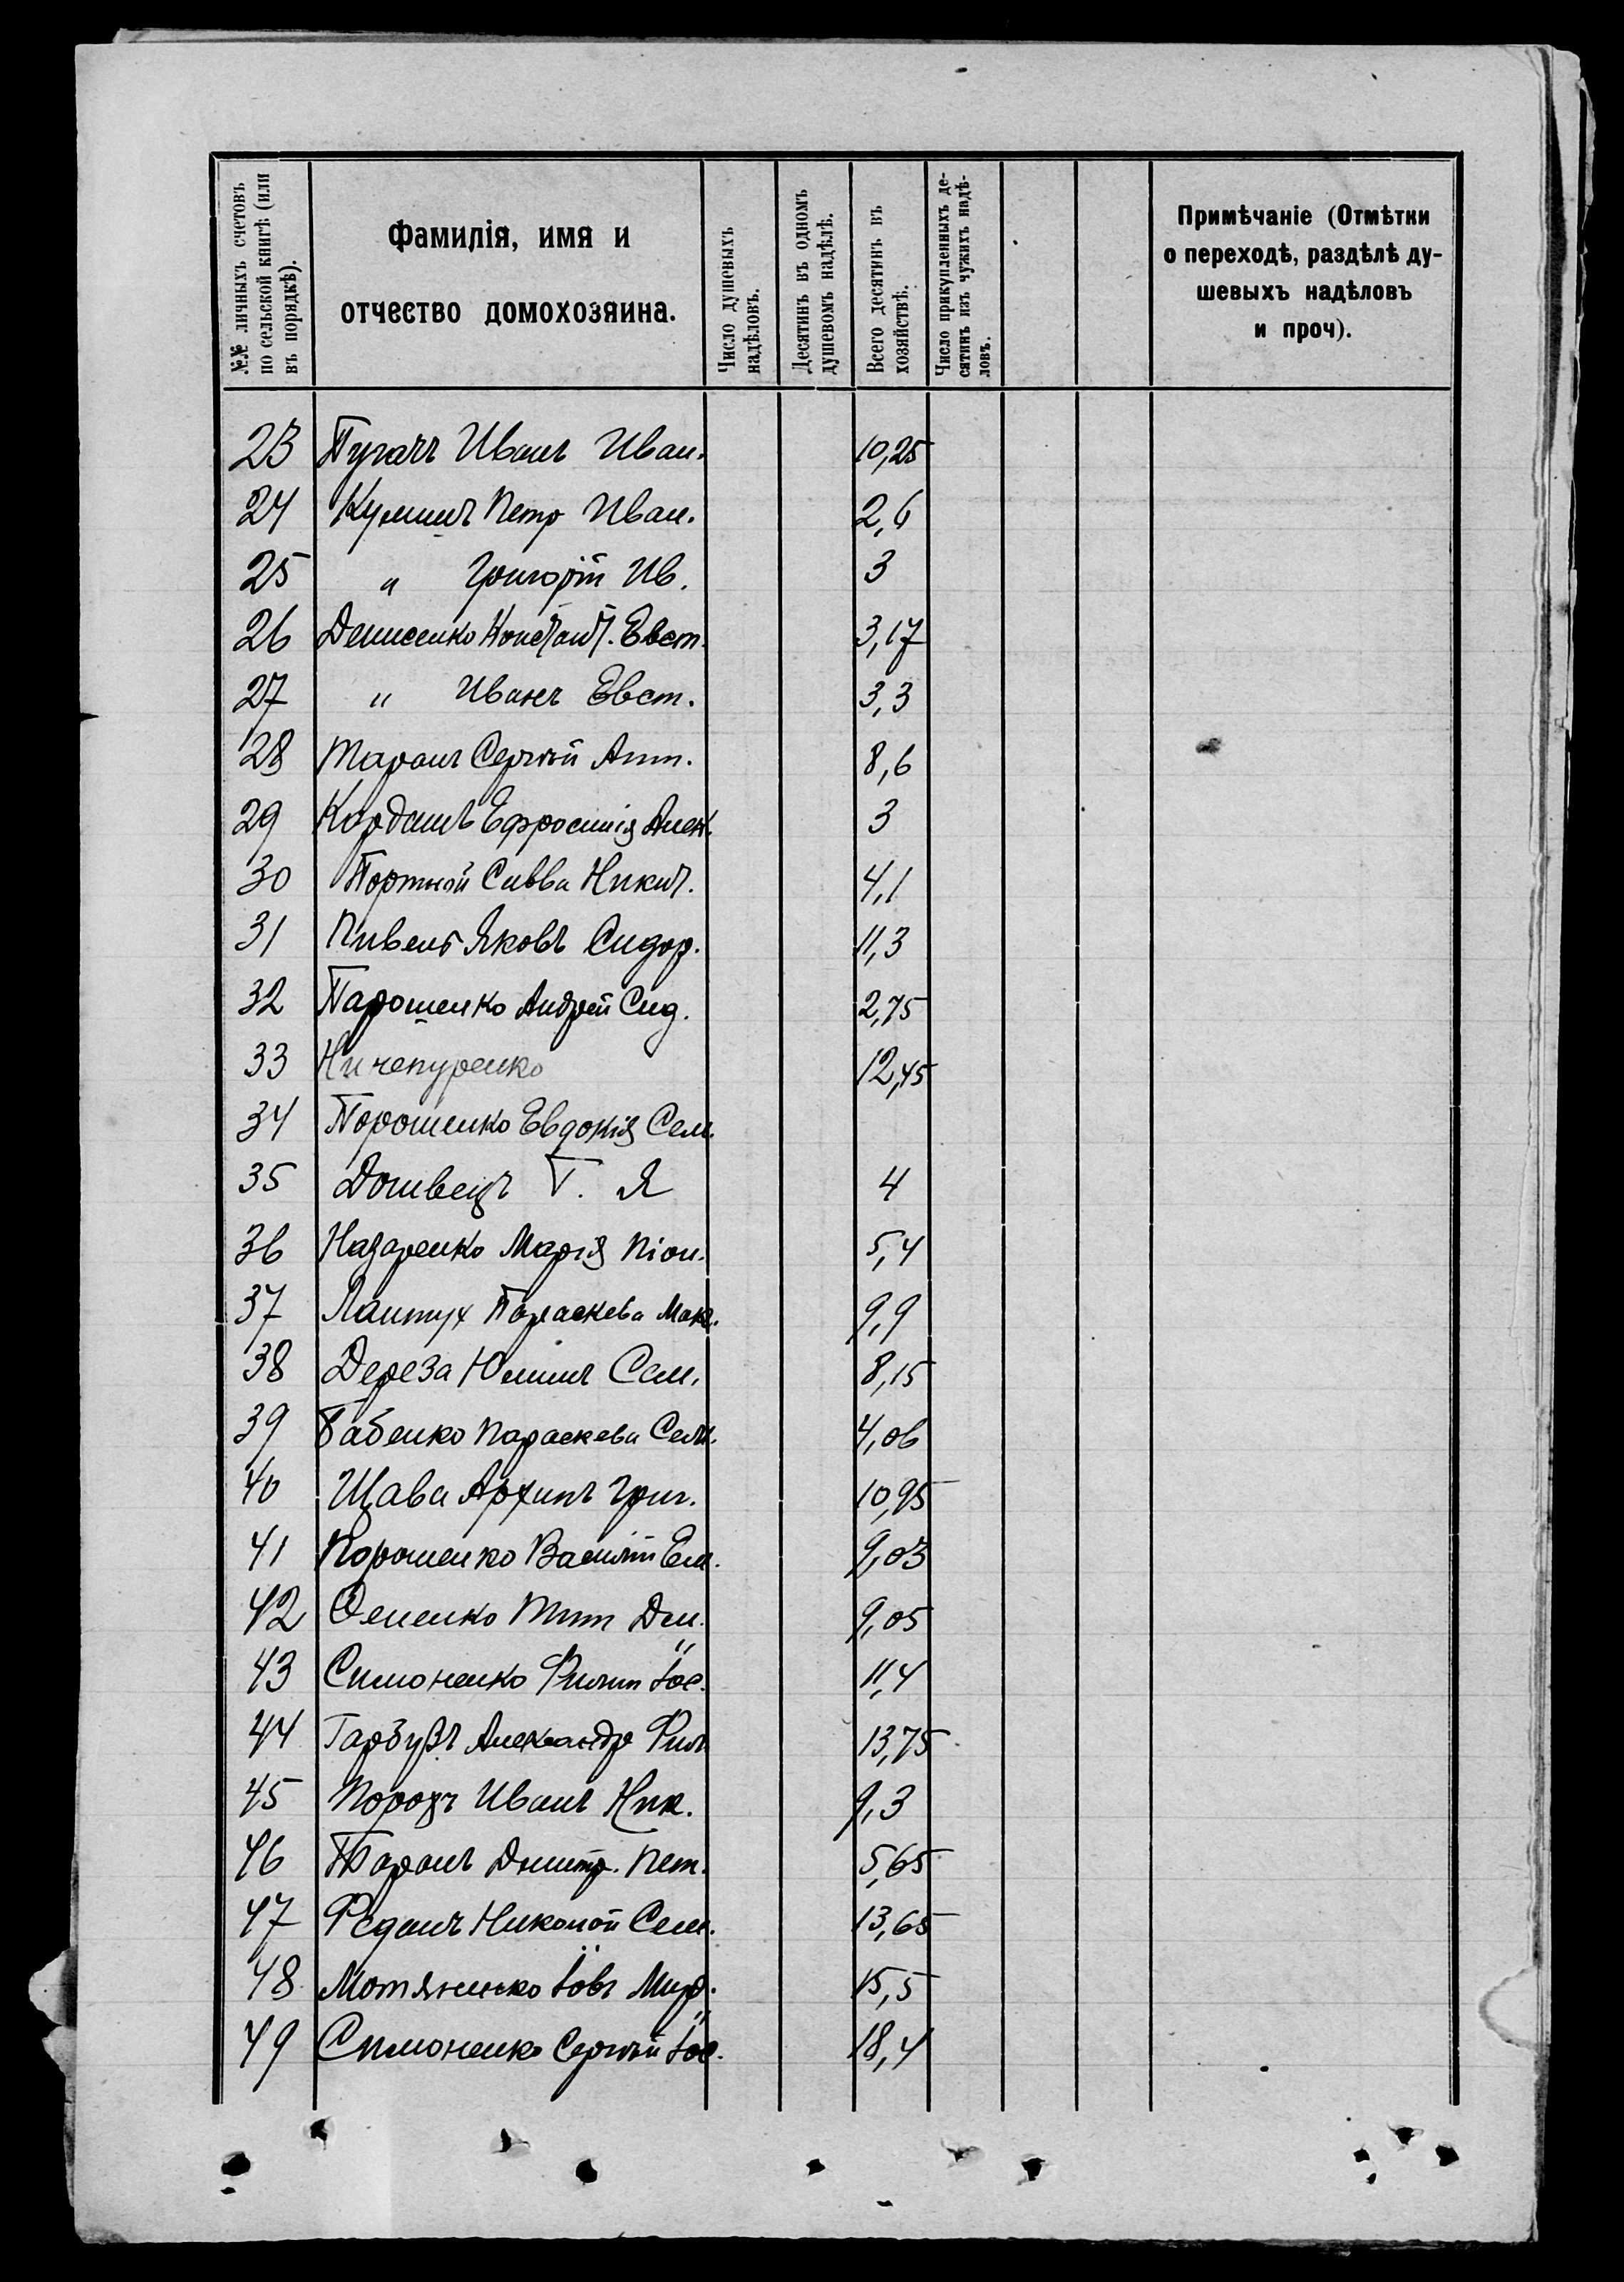 №№ личныхъ счетовъ по сельской книгѣ (или въ порядкѣ).
Фамилія, имя и отчество домохозяина.
Число душевыхъ надѣловъ.
Десятинъ въ одномъ душевомъ надѣлѣ.
Всего десятинъ въ хозяйствѣ.
Число прикупленныхъ десятинъ изъ чужихъ надѣловъ.
Примѣчаніе (Отмѣтки о переходѣ, раздѣлѣ душевыхъ надѣловъ и проч).
23 Пугачъ Иванъ Иван. 10,25
24 Петр Иван. 2,6
25 " Григорій Ив. 3
26 Денисенко Констант. Евст. 3,17
27 " Иванъ Евст. 3,3
28 Таранъ Сергѣй Ант. 8,6
29 Кордашъ Ефросинія Алек. 3
30 Портной Савва Никит. 4,1
31 Пивень Яковъ Сидор. 11,3
32 Парошенко Андрей Сид. 2,75
33 Ничепуренко 12,45
34 Порошенко Евдокія Сем.
35 Г. Я 4
36 Назаренко Марія 5,4
37 Лантух Параскева Мак. 9,9
38 Дереза Юліанъ Сем. 8,15
39 Бабенко Параскева Сем. 4,06
40 Щава Архипъ Григ. 10,95
41 Порошенко Василій Ем. 9,03
42 Тит Дем. 9,05
43 Симоненко Филип Іос. 11,4
44 Гарбузъ Александр Фил. 13,75
45 Порозъ Иванъ Ник. 9,3
46 Таранъ Дмитр. Пет. 5,65
47 Феданъ Николай Сем. 13,65
48 Мотяненко Іовъ Мир. 15,5
49 Симоненко Сергѣй Іос. 18,4